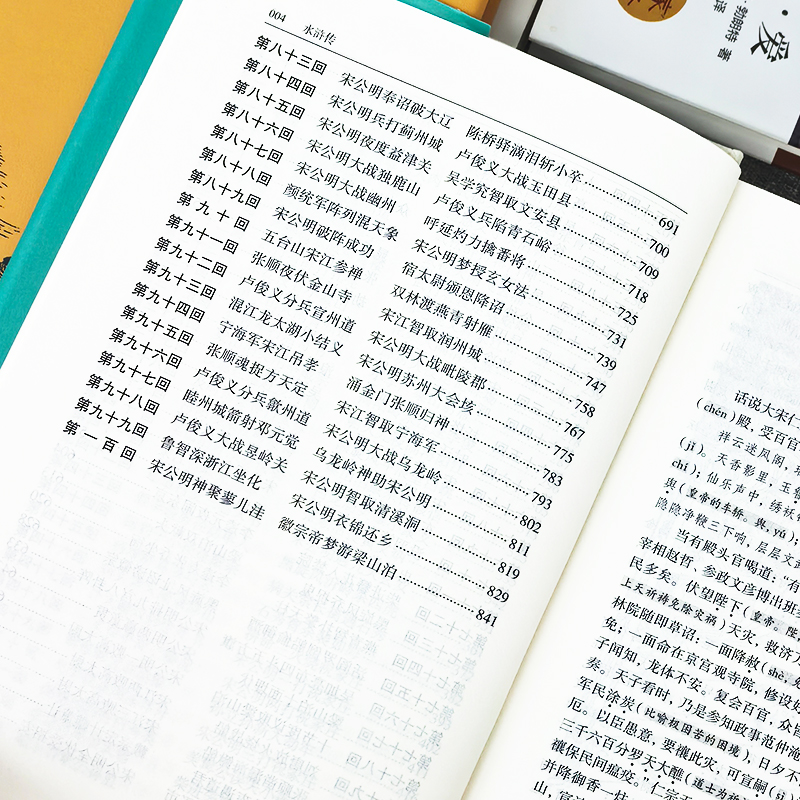 004 水浒传
第八十三回 宋公明奉诏破大辽 陈桥驿滴泪斩小卒……691
第八十四回 宋公明兵打蓟州城 卢俊义大战玉田县……700
第八十五回 宋公明夜度益津关 吴学究智取文安县……709
第八十六回 宋公明大战独鹿山 卢俊义兵陷青石峪……718
第八十七回 宋公明大战幽州 呼延灼力擒番将……725
第八十八回 颜统军阵列混天象 宋公明梦授玄女法……731
第八十九回 宋公明破阵成功 宿太尉颁恩降诏……739
第九十回 五台山宋江参禅 双林渡燕青射雁……747
第九十一回 张顺夜伏金山寺 宋江智取润州城……758
第九十二回 卢俊义分兵宣州道 宋公明大战毗陵郡……767
第九十三回 混江龙太湖小结义 宋公明苏州大会垓……775
第九十四回 宁海军宋江吊孝 涌金门张顺归神……783
第九十五回 张顺魂捉方天定 宋江智取宁海军……793
第九十六回 卢俊义分兵歙州道 宋公明大战乌龙岭……802
第九十七回 睦州城箭射邓元觉 乌龙岭神助宋公明……811
第九十八回 卢俊义大战昱岭关 宋公明智取清溪洞……819
第九十九回 鲁智深浙江坐化 宋公明衣锦还乡……829
第一百回 宋公明神聚蓼儿洼 徽宗帝梦游梁山泊……841
话说大宋仁
（chén）殿，受百官
祥云迷凤阁，
（jī）。天香影里，玉
chì）；仙乐声中，绣袄
舆（皇帝的车轿。舆，yú）；
隐隐净鞭三下响，层层文武
当有殿头官喝道：“有
宰相赵哲、参政文彦博出班
民多矣。伏望陛下（皇帝。陛
上天祈祷免除灾祸）天灾，救济万
林院随即草诏：一面降赦（shè，免
免；一面命在京宫观寺院，修设好
子闻知，龙体不安。复会百官，众皆
奏。天子看时，乃是参知政事范仲淹
军民涂炭（比喻极困苦的困境），日夕不
厄。以臣愚意，要禳此灾，可宣嗣（sì
三千六百分罗天大醮（道士为祈
禳保民间瘟疫。仁宗天
并降御香一炷
山，宣
·爱
勃朗特 著
译